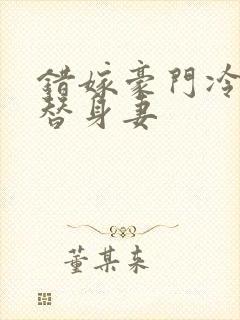 錯嫁豪門冷
替身妻
董某来